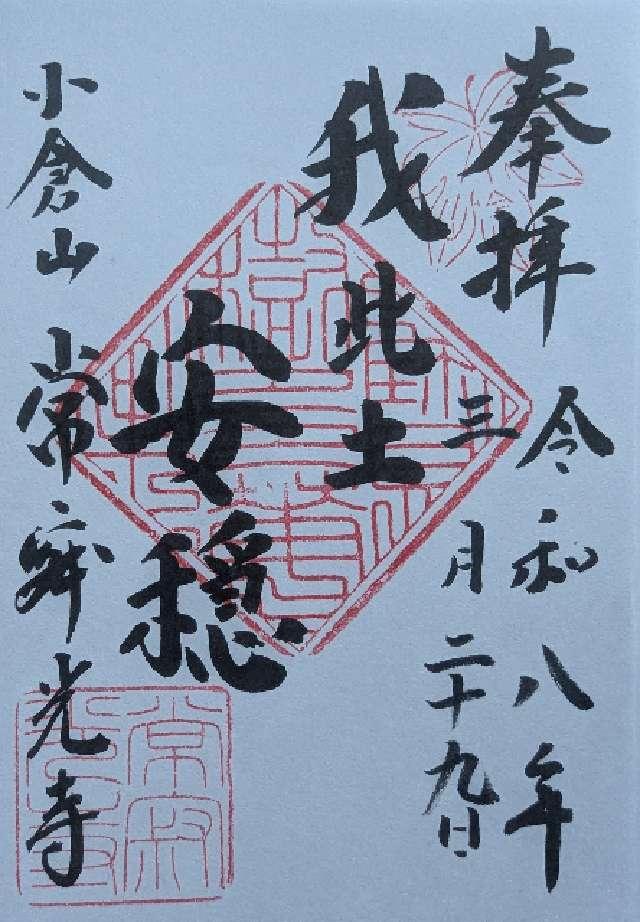 奉拝 令和八年
三月二十九日
我此土
安穏
小倉山 常寂光寺
常寂